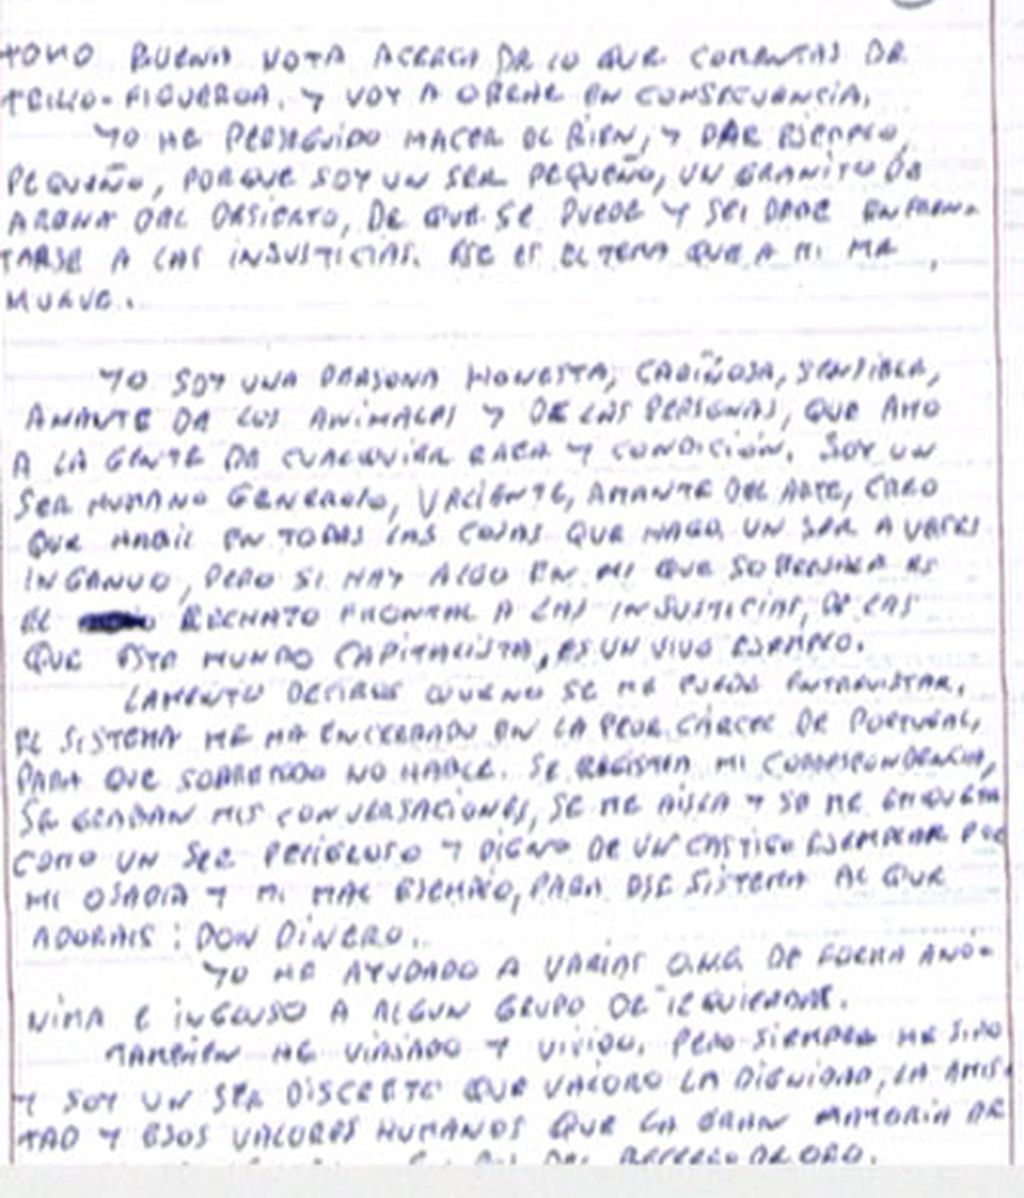 TOMO BUENA NOTA ACERCA DE LO QUE COMENTAS DE
TRILLO-FIGUEROA, Y VOY A OBRAR EN CONSECUENCIA.
YO HE PERSEGUIDO HACER EL BIEN, Y DAR EJEMPLO,
PEQUEÑO, PORQUE SOY UN SER PEQUEÑO, UN GRANITO DE
ARENA DEL DESIERTO, DE QUE SE PUEDE Y SE DEBE ENFREN-
TARSE A LAS INSUSTICIAS. ESE ES EL TEMA QUE A MI ME
MUEVE.
YO SOY UNA PERSONA HONESTA, CARIÑOSA, SENSIBLE,
AMANTE DE LOS ANIMALES Y DE LAS PERSONAS, QUE AMO
A LA GENTE DE CUALQUIER RAZA Y CONDICIÓN. SOY UN
SER HUMANO GENEROSO, VALIENTE, AMANTE DEL ARTE, CREO
QUE HABIL EN TODAS LAS COSAS QUE HAGO, UN SER A VECES
INGENUO, PERO SI HAY ALGO EN MI QUE SOBRESALE ES
EL RECHAZO FRONTAL A LAS INSUSTICIAS, DE LAS
QUE ESTE MUNDO CAPITALISTA, ES UN VIVO EJEMPLO.
LAMENTO DECIROS QUE NO SE ME PUEDE ENTREVISTAR.
EL SISTEMA ME HA ENCERRADO EN LA PEOR CÁRCEL DE PORTUGAL,
PARA QUE SOBRETODO NO HABLE. SE REGISTRA MI CORRESPONDENCIA,
SE GRABAN MIS CONVERSACIONES, SE ME AISLA Y SE ME ETIQUETA
COMO UN SER PELIGROSO Y DIGNO DE UN CASTIGO EJEMPLAR POR
MI OSADIA Y MI MAL EJEMPLO, PARA ESE SISTEMA AL QUE
ADORAIS: DON DINERO.
YO HE AYUDADO A VARIAS O.N.G. DE FORMA ANÓ-
NIMA E INCLUSO A ALGUN GRUPO DE IZQUIERDAS.
TAMBIEN HE VIAJADO Y VIVIDO. PERO SIEMPRE HE SIDO
Y SOY UN SER DISCRETO QUE VALORO LA DIGNIDAD, LA AMIS-
TAD Y ESOS VALORES HUMANOS QUE LA GRAN MAYORIA DE
DEL BECERRO DE ORO.